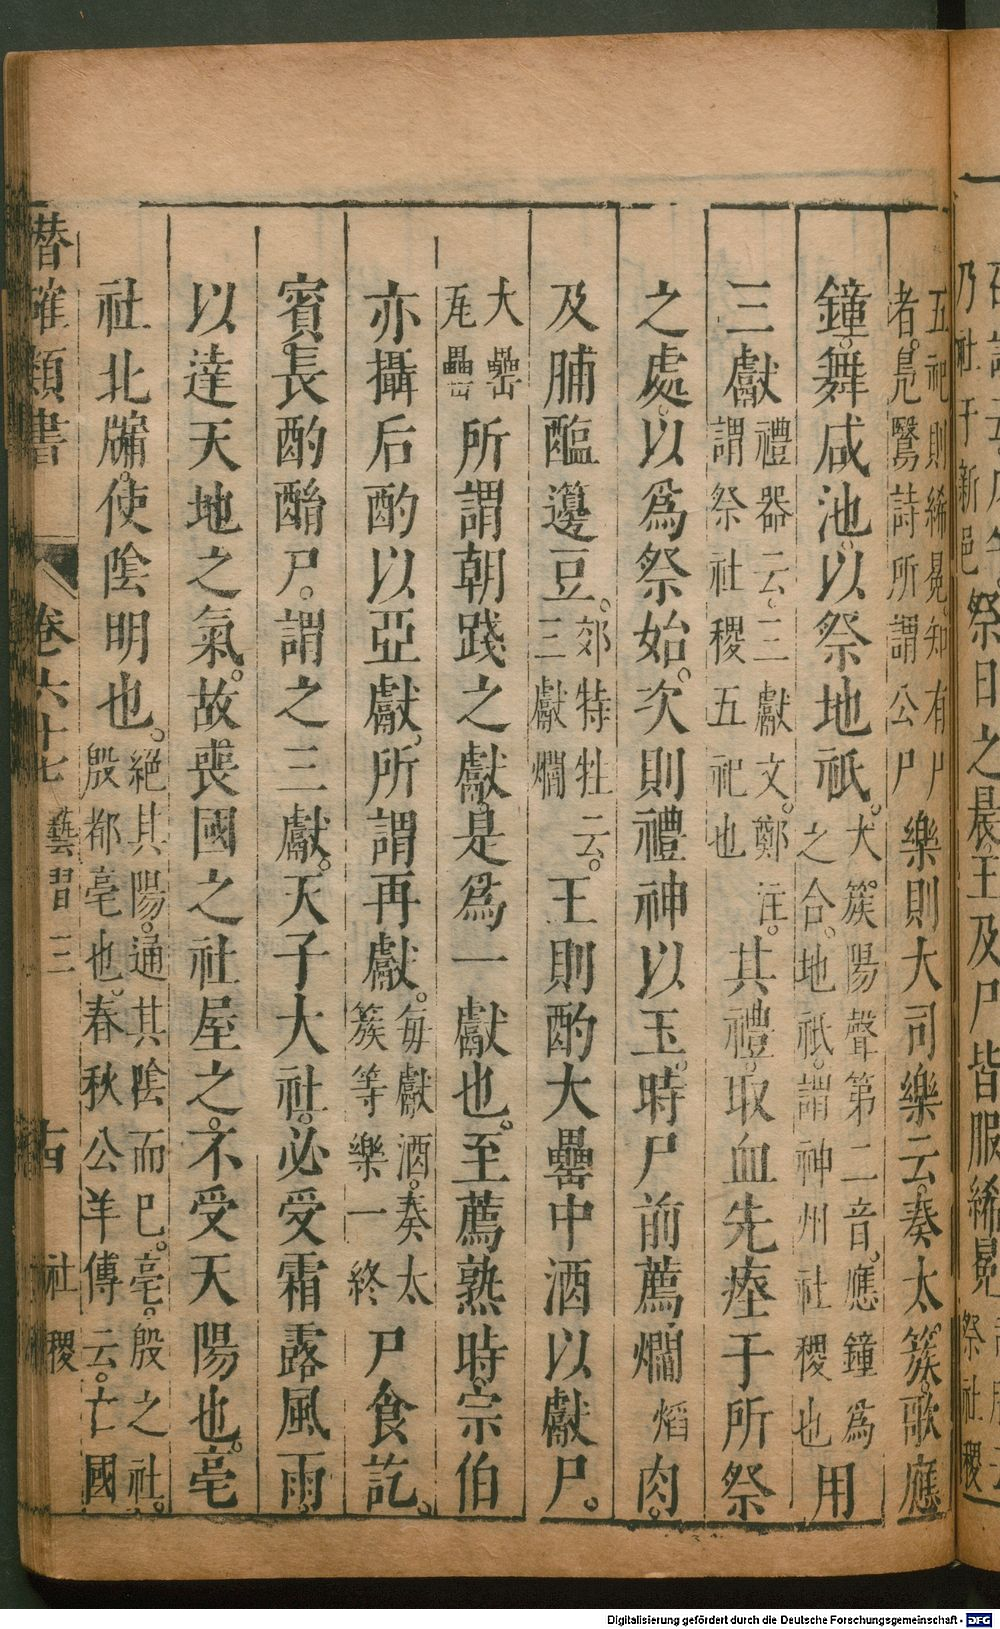 乃社于新邑
祭日之晨王及尸皆服絺冕
祭社稷
五祀則絺冕。知有尸
者。鳧鷖詩所謂公尸
樂則大司樂云。奏太簇。歌應
鐘。舞咸池。以祭地祇。
大簇陽聲第二音。應鐘為
之合。地祇。謂神州社稷也
用
三獻
禮器云。三獻文。鄭注。
謂祭社稷五祀也
其禮。取血先瘞于所祭
之處。以為祭始。次則禮神以玉。時尸前薦爓
焰
肉。
及脯醢籩豆。
郊特牲云。
三獻爓
王則酌大罍中酒以獻尸。
大罍
瓦罍
所謂朝踐之獻。是為一獻也。至薦熟時。宗伯
亦攝后酌以亞獻。所謂再獻。
每獻酒。奏太
簇等樂一終
尸食訖。
賓長酌酳尸。謂之三獻。天子大社。必受霜露風雨。
以達天地之氣。故喪國之社屋之。不受天陽也。亳
社北牖。使陰明也。
絕其陽。通其陰而已。亳。殷之社。
殷都亳也。春秋公羊傳云。亡國
潛確類書
卷六十七
藝習三
十四
社稷
Digitalisierung gefördert durch die Deutsche Forschungsgemeinschaft - DFG